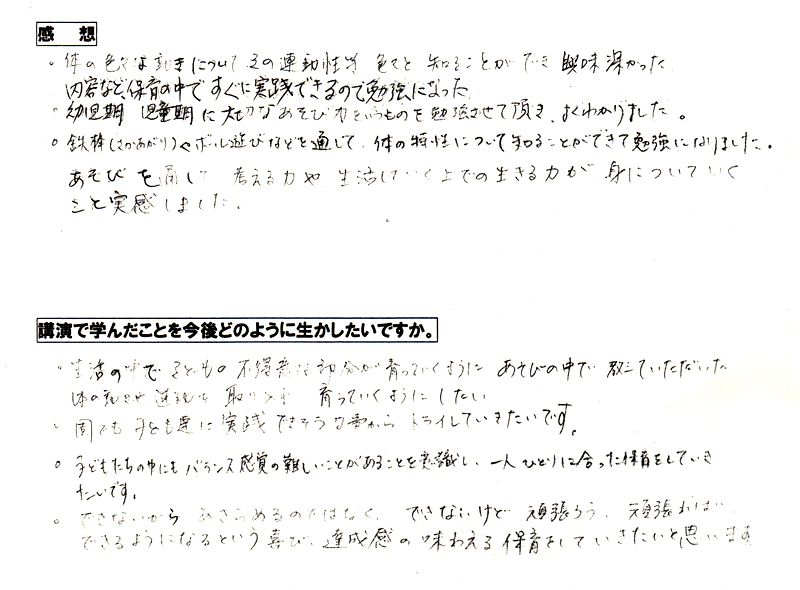 感 想
・体の色々な動きについてその運動性等 色々と 知ることができ 興味深かった
内容など、保育の中で すぐに実践できるので勉強になった
・幼児期 児童期に大切なあそび力というものを勉強させて頂き、よくわかりました。
○ 鉄棒(さかあがり)やボール遊びなどを通じて、体の特性について知ることができて勉強になりました。
あそびを通して 考える力や 生活していく上での生きる力が 身についていく
こと実感しました。
講演で学んだことを今後どのように生かしたいですか。
・生活の中で 子どもの 不得意な部分が育っていくように あそびの中で 教えていただいた
体の動きや 運動を 取り入れ 育っていくようにしたい
・園でも 子ども達に 実践 できそうな事から トライしていきたいです。
○ 子どもたちの中にも バランス感覚の難しいことがあることを意識し、一人ひとりに合った保育をしていき
たいです。
○ できないから あきらめるのではなく、できないけど 頑張ろう、頑張れば、
できるようになるという喜び、達成感の味わえる 保育をしていきたいと思います